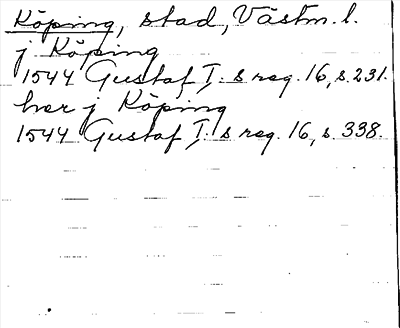 Köping, stad, Västm. l.
j Köping
1544 Gustaf I: s reg. 16, s. 231.
her j Köping
1544 Gustaf I: s reg. 16, s. 338.